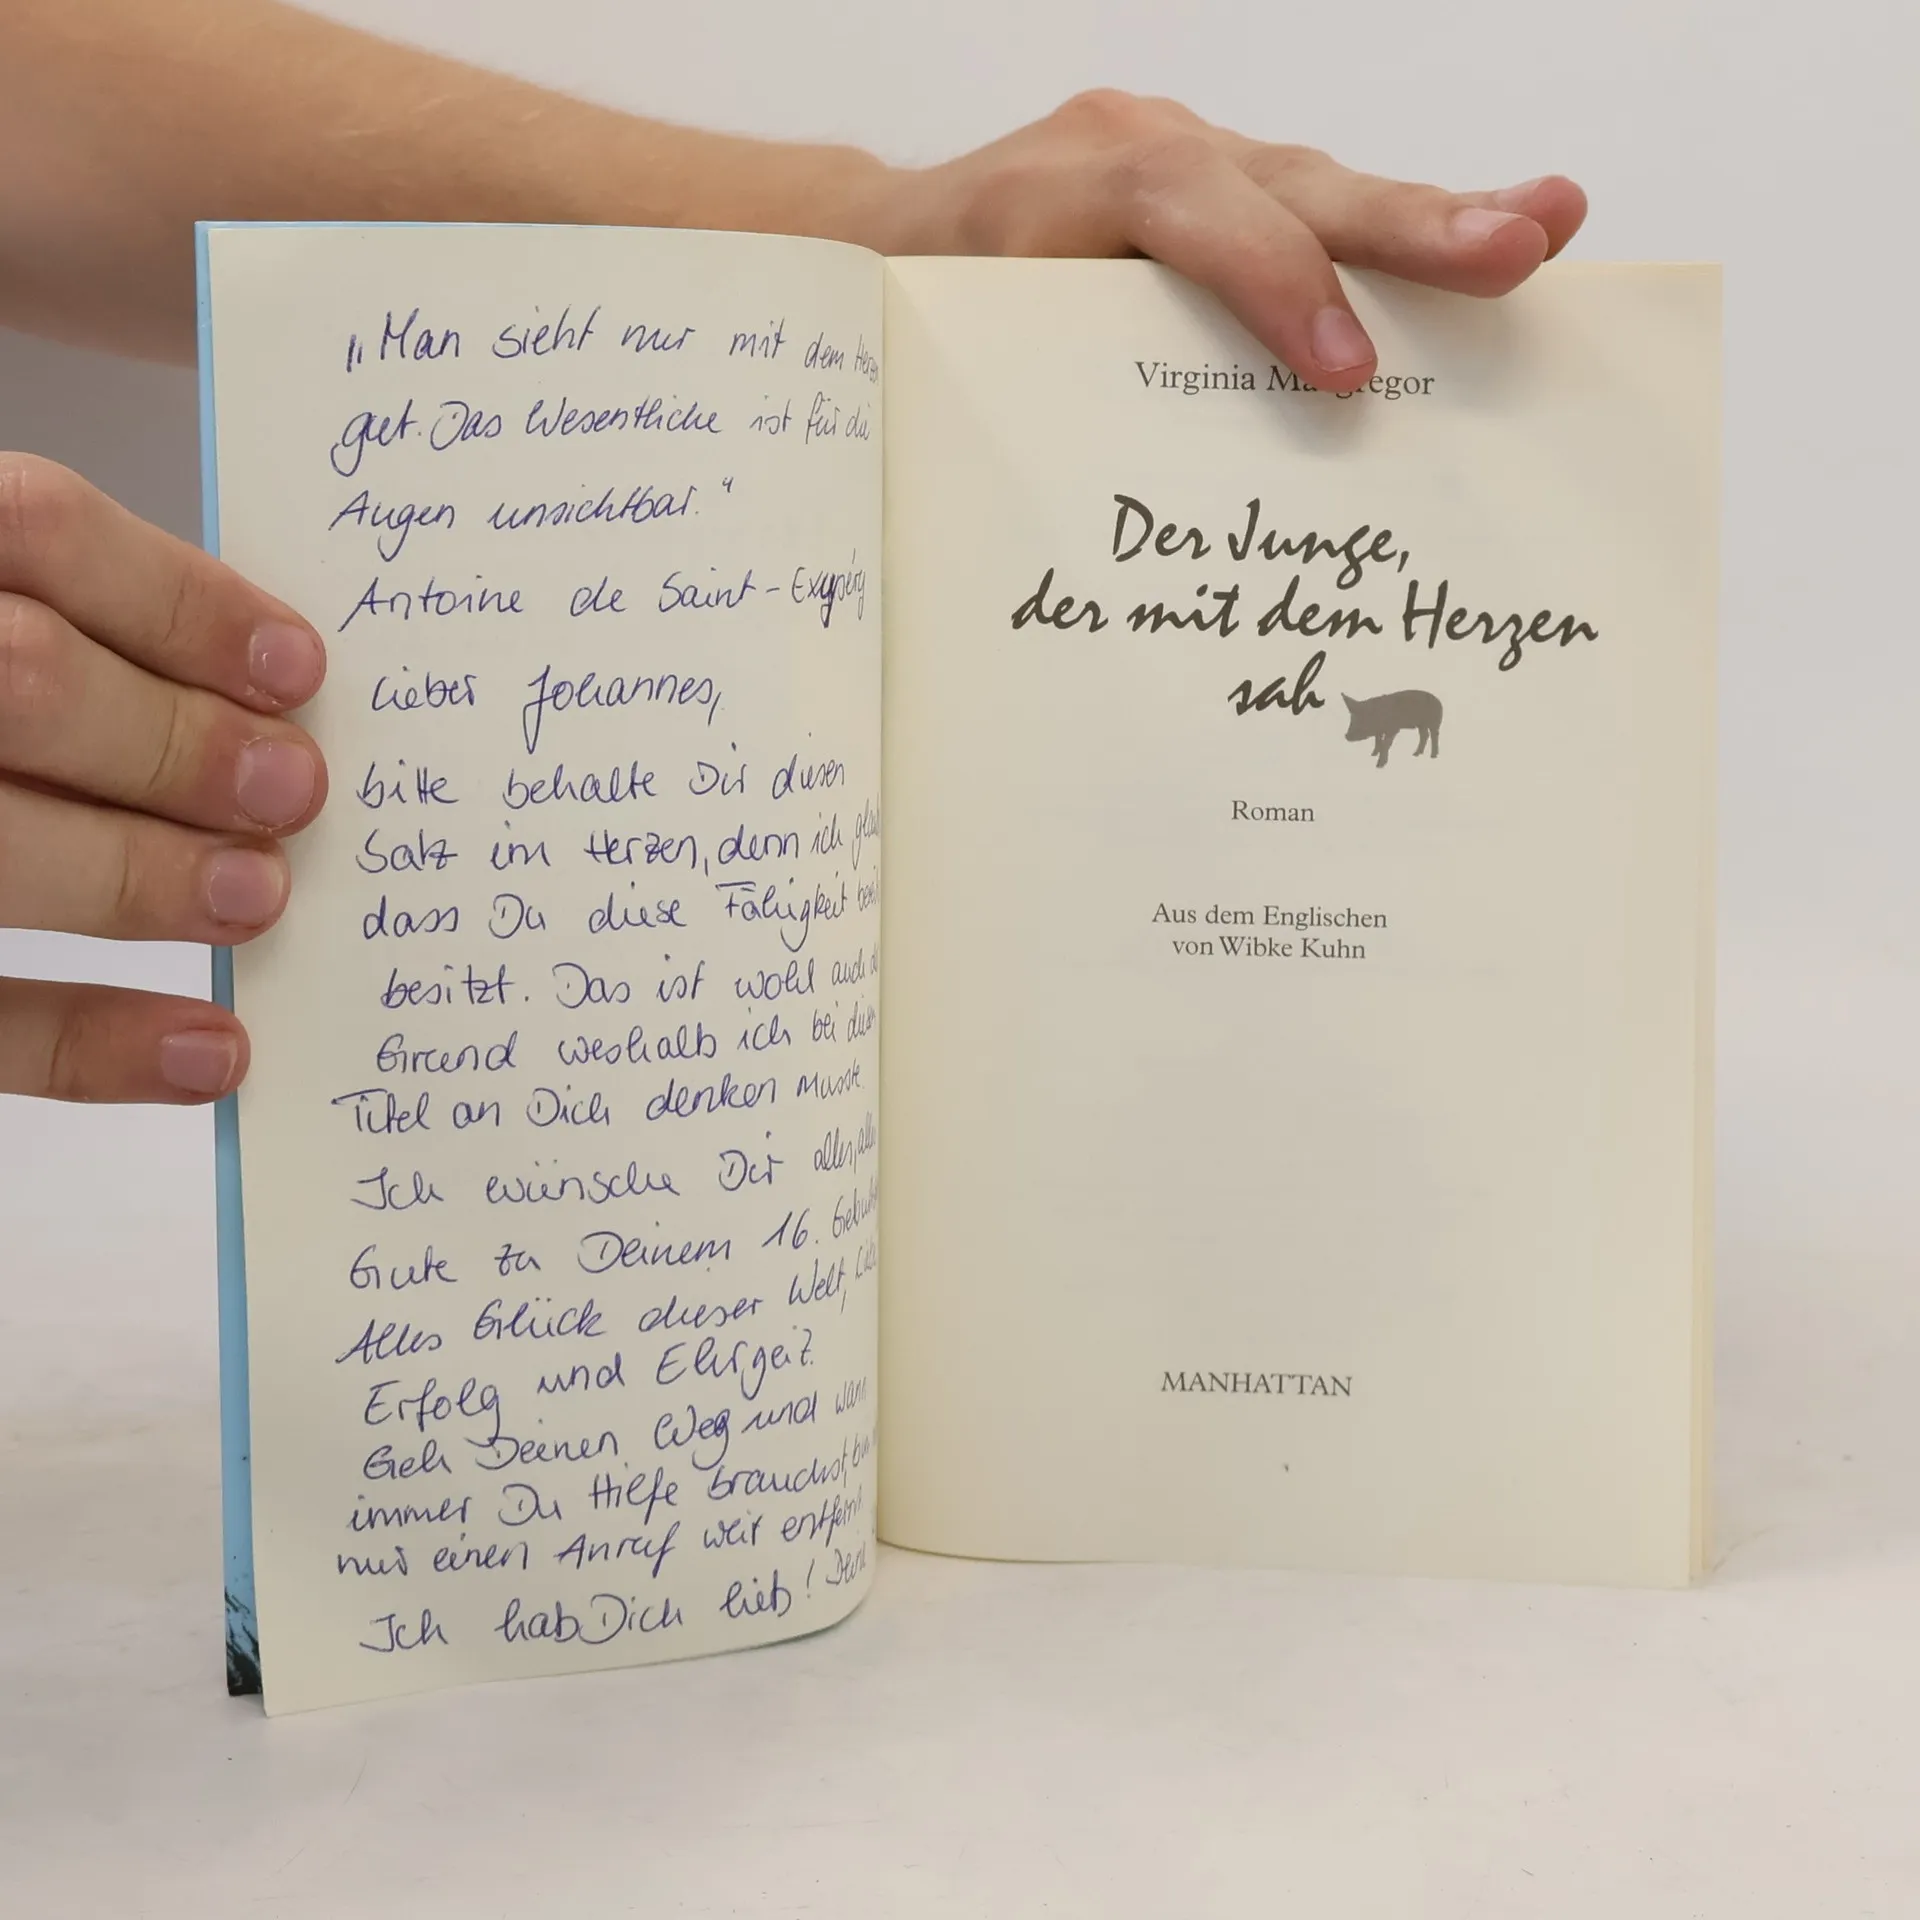 „Man sieht nur mit dem Herzen
gut. Das Wesentliche ist für die
Augen unsichtbar."
Antoine de Saint-Exypéry
Lieber Johannes,
bitte behalte Dir diesen
Satz im Herzen, denn ich glau
dass Du diese Fähigkeit berei
besitzt. Das ist wohl auch de
Grund weshalb ich bei diesem
Titel an Dich denken musste.
Ich wünsche Dir alles, alle
Gute zu Deinem 16. Gebur
Alles Glück dieser Welt,
Erfolg und Ehrgeiz.
Geh Deinen Weg und wann
immer Du Hilfe brauchst, bin
nur einen Anruf weit entfernt
Ich hab Dich lieb!
Virginia Ma gregor
Der Junge,
der mit dem Herzen
sah
Roman
Aus dem Englischen
von Wibke Kuhn
MANHATTAN